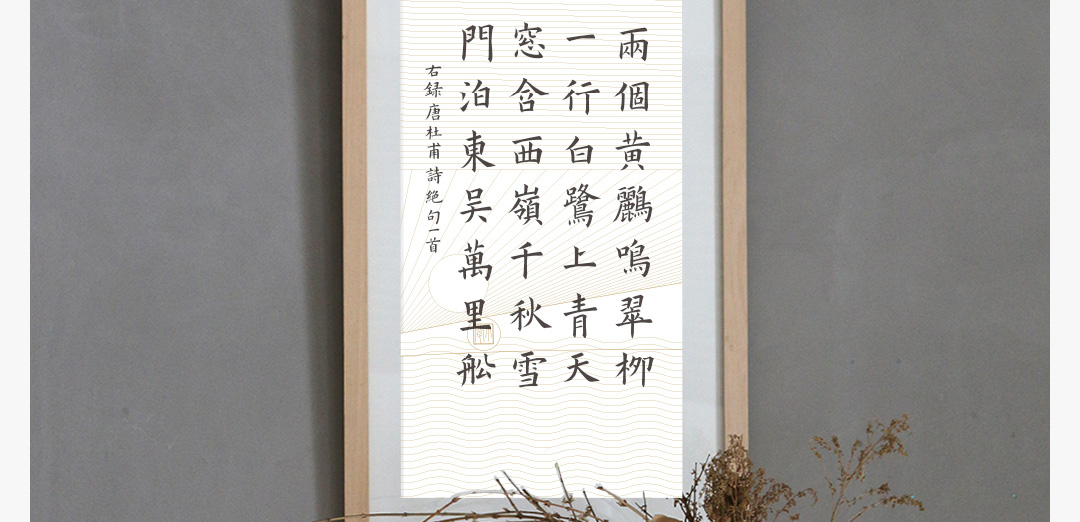 兩個黃鸝鳴翠柳
一行白鷺上青天
窓含西嶺千秋雪
門泊東吴萬里舩
右録唐杜甫詩絶句一首